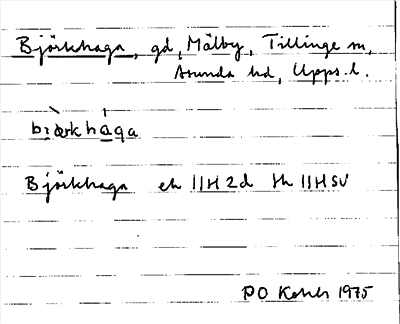 Björkhaga, gd, Mälby, Tillinge sn,
Åsunda hd, Upps. l.
bi̯ò̈rkhàga
Björkhaga ek 11H 2d th 11H SV
PO 1975